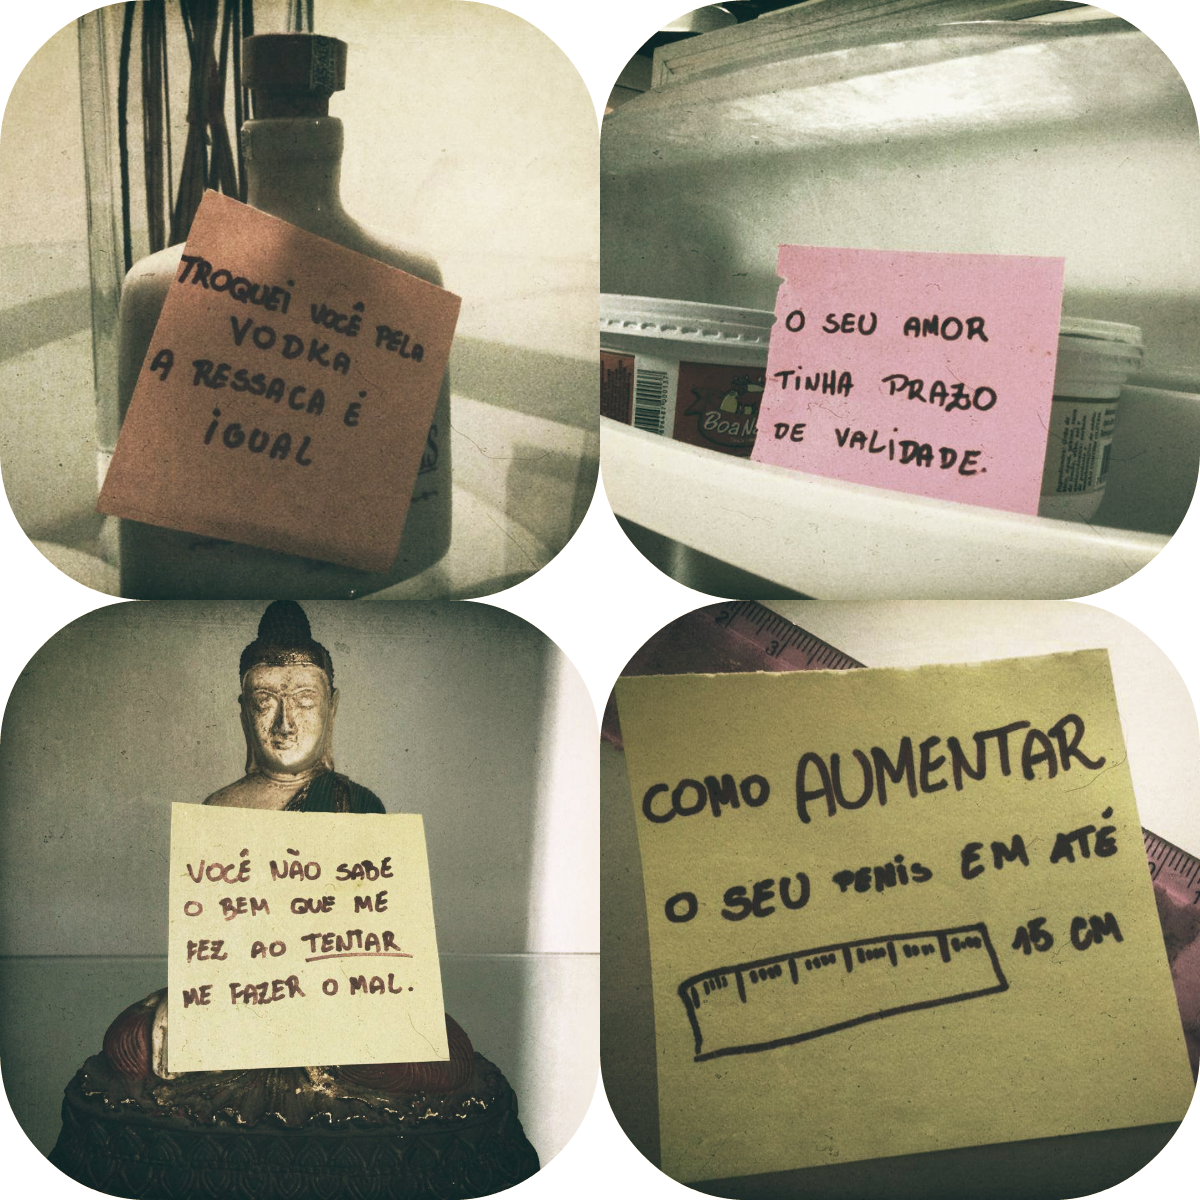 TROQUEI VOCÊ PELA
VODKA
A RESSACA É
IGUAL
O SEU AMOR
TINHA PRAZO
DE VALIDADE.
BoaN
VOCÊ NÃO SABE
O BEM QUE ME
FEZ AO TENTAR
ME FAZER O MAL.
2 3
COMO AUMENTAR
O SEU PENIS EM ATÉ
15 CM